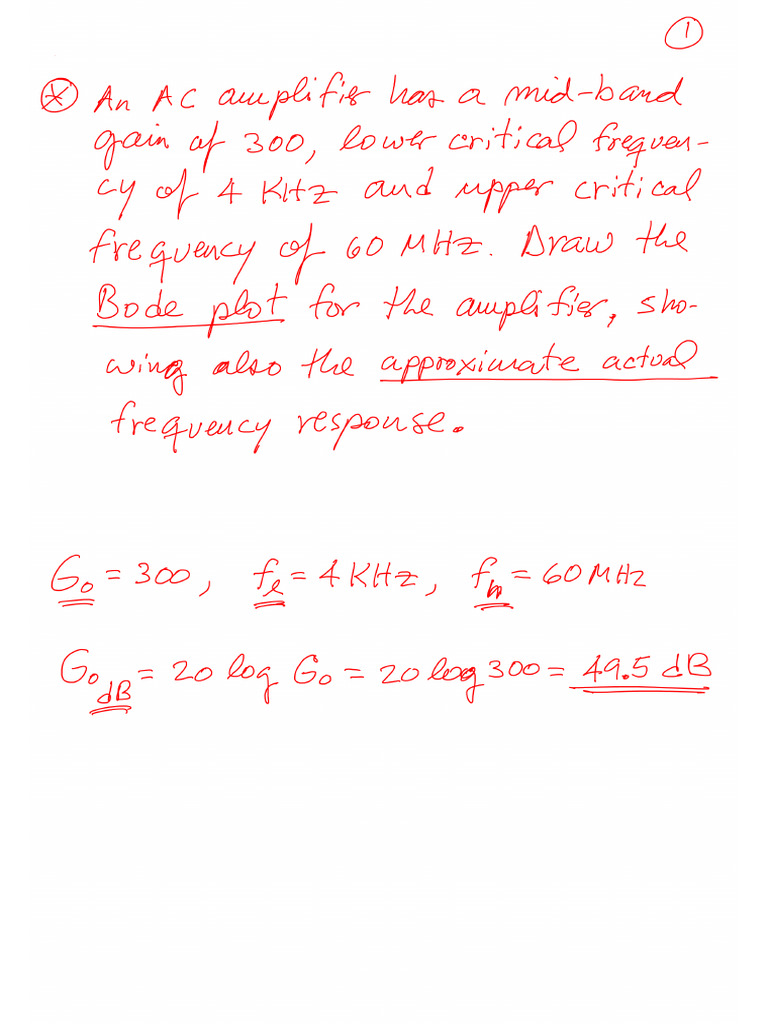 1
* An AC amplifier has a mid-band
gain of 300, lower critical frequen-
cy of 4 KHz and upper critical
frequency of 60 MHz. Draw the
Bode plot for the amplifier, sho-
wing also the approximate actual
frequency response.
G₀ = 300, fℓ = 4 KHz, fₕ = 60 MHz
G₀ dB = 20 log G₀ = 20 log 300 = 49.5 dB